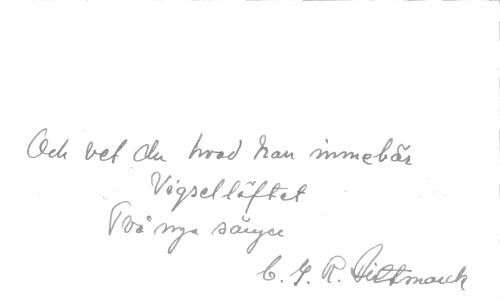 Och vet du hvad han innebär
Vigsellöftet
Två nya sånger
C. G. R. Dittmarck